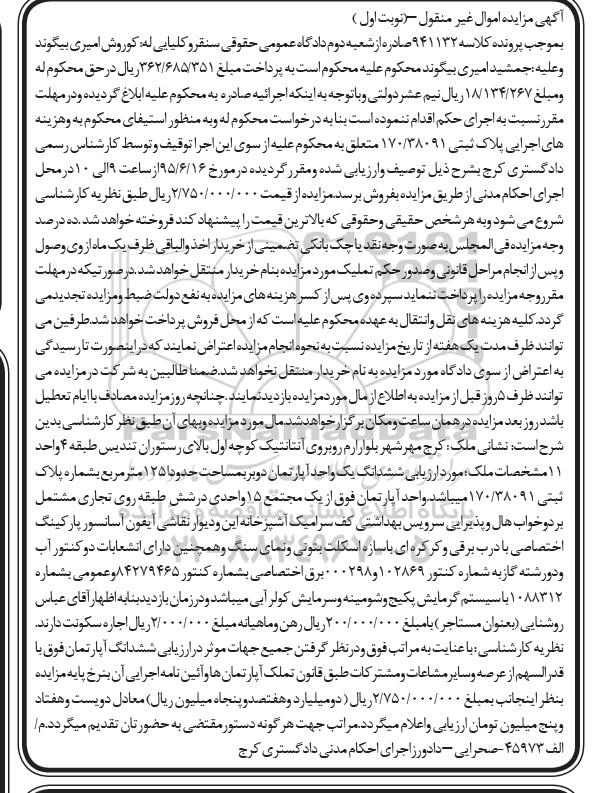 آگهی مزایده اموال غیر منقول –(نوبت اول )
بموجب پرونده کلاسه ۹۴۱۱۳۲صادره از شعبه دوم دادگاه عمومی حقوقی سنقر و کلیایی له: کوروش امیری بیگوند
وعلیه :جمشید امیری بیگوند محکوم علیه محکوم است به پرداخت مبلغ ۳۶۲/۶۸۵/۳۵۱ریال در حق محکوم له
ومبلغ ۱۸/۱۳۴/۲۶۷ریال نیم عشر دولتی وباتوجه به اینکه اجرائیه صادره به محکوم علیه ابلاغ گردیده ودر مهلت
مقرر نسبت به اجرای حکم اقدام ننموده است بنا به درخواست محکوم له وبه منظور استیفای محکوم به وهزینه
های اجرایی پلاک ثبتی ۱۷۰/۳۸۰۹۱ متعلق به محکوم علیه از سوی این اجرا توقیف وتوسط کارشناس رسمی
دادگستری کرج بشرح ذیل توصیف وارزیابی شده ومقرر گردیده در مورخ ۹۵/۶/۱۶از ساعت ۹الی ۱۰در محل
اجرای احکام مدنی از طریق مزایده بفروش برسد.مزایده از قیمت ۲/۷۵۰/۰۰۰/۰۰۰ریال طبق نظریه کارشناسی
شروع می شود وبه هر شخص حقیقی وحقوقی که بالاترین قیمت را پیشنهاد کند فروخته خواهد شد .ده درصد
وجه مزایده فی المجلس به صورت وجه نقد یا چک بانکی تضمینی از خریدار اخذ والباقی ظرف یک ماه از وی وصول
وپس از انجام مراحل قانونی وصدور حکم تملیک مورد مزایده بنام خریدار منتقل خواهد شد.درصورتیکه در مهلت
مقرر وجه مزایده را پرداخت ننماید سپرده وی پس از کسر هزینه های مزایده به نفع دولت ضبط ومزایده تجدید می
گردد.کلیه هزینه های نقل وانتقال به عهده محکوم علیه است که از محل فروش پرداخت خواهد شد.طرفین می
توانند ظرف مدت یک هفته از تاریخ مزایده نسبت به نحوه انجام مزایده اعتراض نمایند که دراینصورت تا رسیدگی
به اعتراض از سوی دادگاه مورد مزایده به نام خریدار منتقل نخواهد شد.ضمنا طالبین به شرکت در مزایده می
توانند ظرف ۵روز قبل از مزایده به اطلاع از مال مورد مزایده بازدید نمایند .چنانچه روز مزایده مصادف با ایام تعطیل
باشد روز بعد مزایده در همان ساعت ومکان برگزار خواهد شد.مال مورد مزایده وبهای آن طبق نظر کارشناسی بدین
شرح است: نشانی ملک : کرج مهرشهر بلوار ارم روبروی آنتاتنیک کوچه اول بالای رستوران تندیس طبقه ۴واحد
۱۱مشخصات ملک :مورد ارزیابی ششدانگ یک واحد آپارتمان دوبر بمساحت حدودا ۱۲۵متر مربع بشماره پلاک
ثبتی ۱۷۰/۳۸۰۹۱میباشد.واحد آپارتمان فوق از یک مجتمع ۱۵واحدی در شش طبقه روی تجاری مشتمل
بر دوخواب هال وپذیرایی سرویس بهداشتی کف سرامیک آشپزخانه این ودیوار نقاشی آیفون آسانسور پارکینگ
اختصاصی با درب برقی و کرکره ای باسازه اسکلت بتونی ونمای سنگ وهمچنین دارای انشعابات دو کنتور آب
ودورشته گاز به شماره کنتور ۱۰۲۸۶۹و۰۰۰۲۹۸برق اختصاصی بشماره کنتور ۸۴۲۷۹۴۶۵وعمومی بشماره
۱۰۸۸۳۱۲باسیستم گرمایش پکیج وشومینه وسرمایش کولر آبی میباشد ودر زمان بازدید بنا به اظهار آقای عباس
روشنایی (بعنوان مستاجر )بامبلغ ۲۰۰/۰۰۰/۰۰۰ریال رهن وماهیانه مبلغ ۲/۰۰۰/۰۰۰ریال اجاره سکونت دارند.
نظریه کارشناسی : با عنایت به مراتب فوق ودر نظر گرفتن جمیع جهات موثر در ارزیابی ششدانگ آپارتمان فوق با
قدرالسهم از عرصه وسایر مشاعات ومشترکات طبق قانون تملک آپارتمان ها وآئین نامه اجرایی آن بنرخ پایه مزایده
بنظر اینجانب بمبلغ ۲/۷۵۰/۰۰۰/۰۰۰ریال ( دو میلیارد وهفتصدو پنجاه میلیون ریال) معادل دویست وهفتاد
وپنج میلیون تومان ارزیابی واعلام میگردد.مراتب جهت هر گونه دستور مقتضی به حضورتان تقدیم میگردد.م/
الف ۴۵۹۷۳–صحرایی –دادورز اجرای احکام مدنی دادگستری کرج